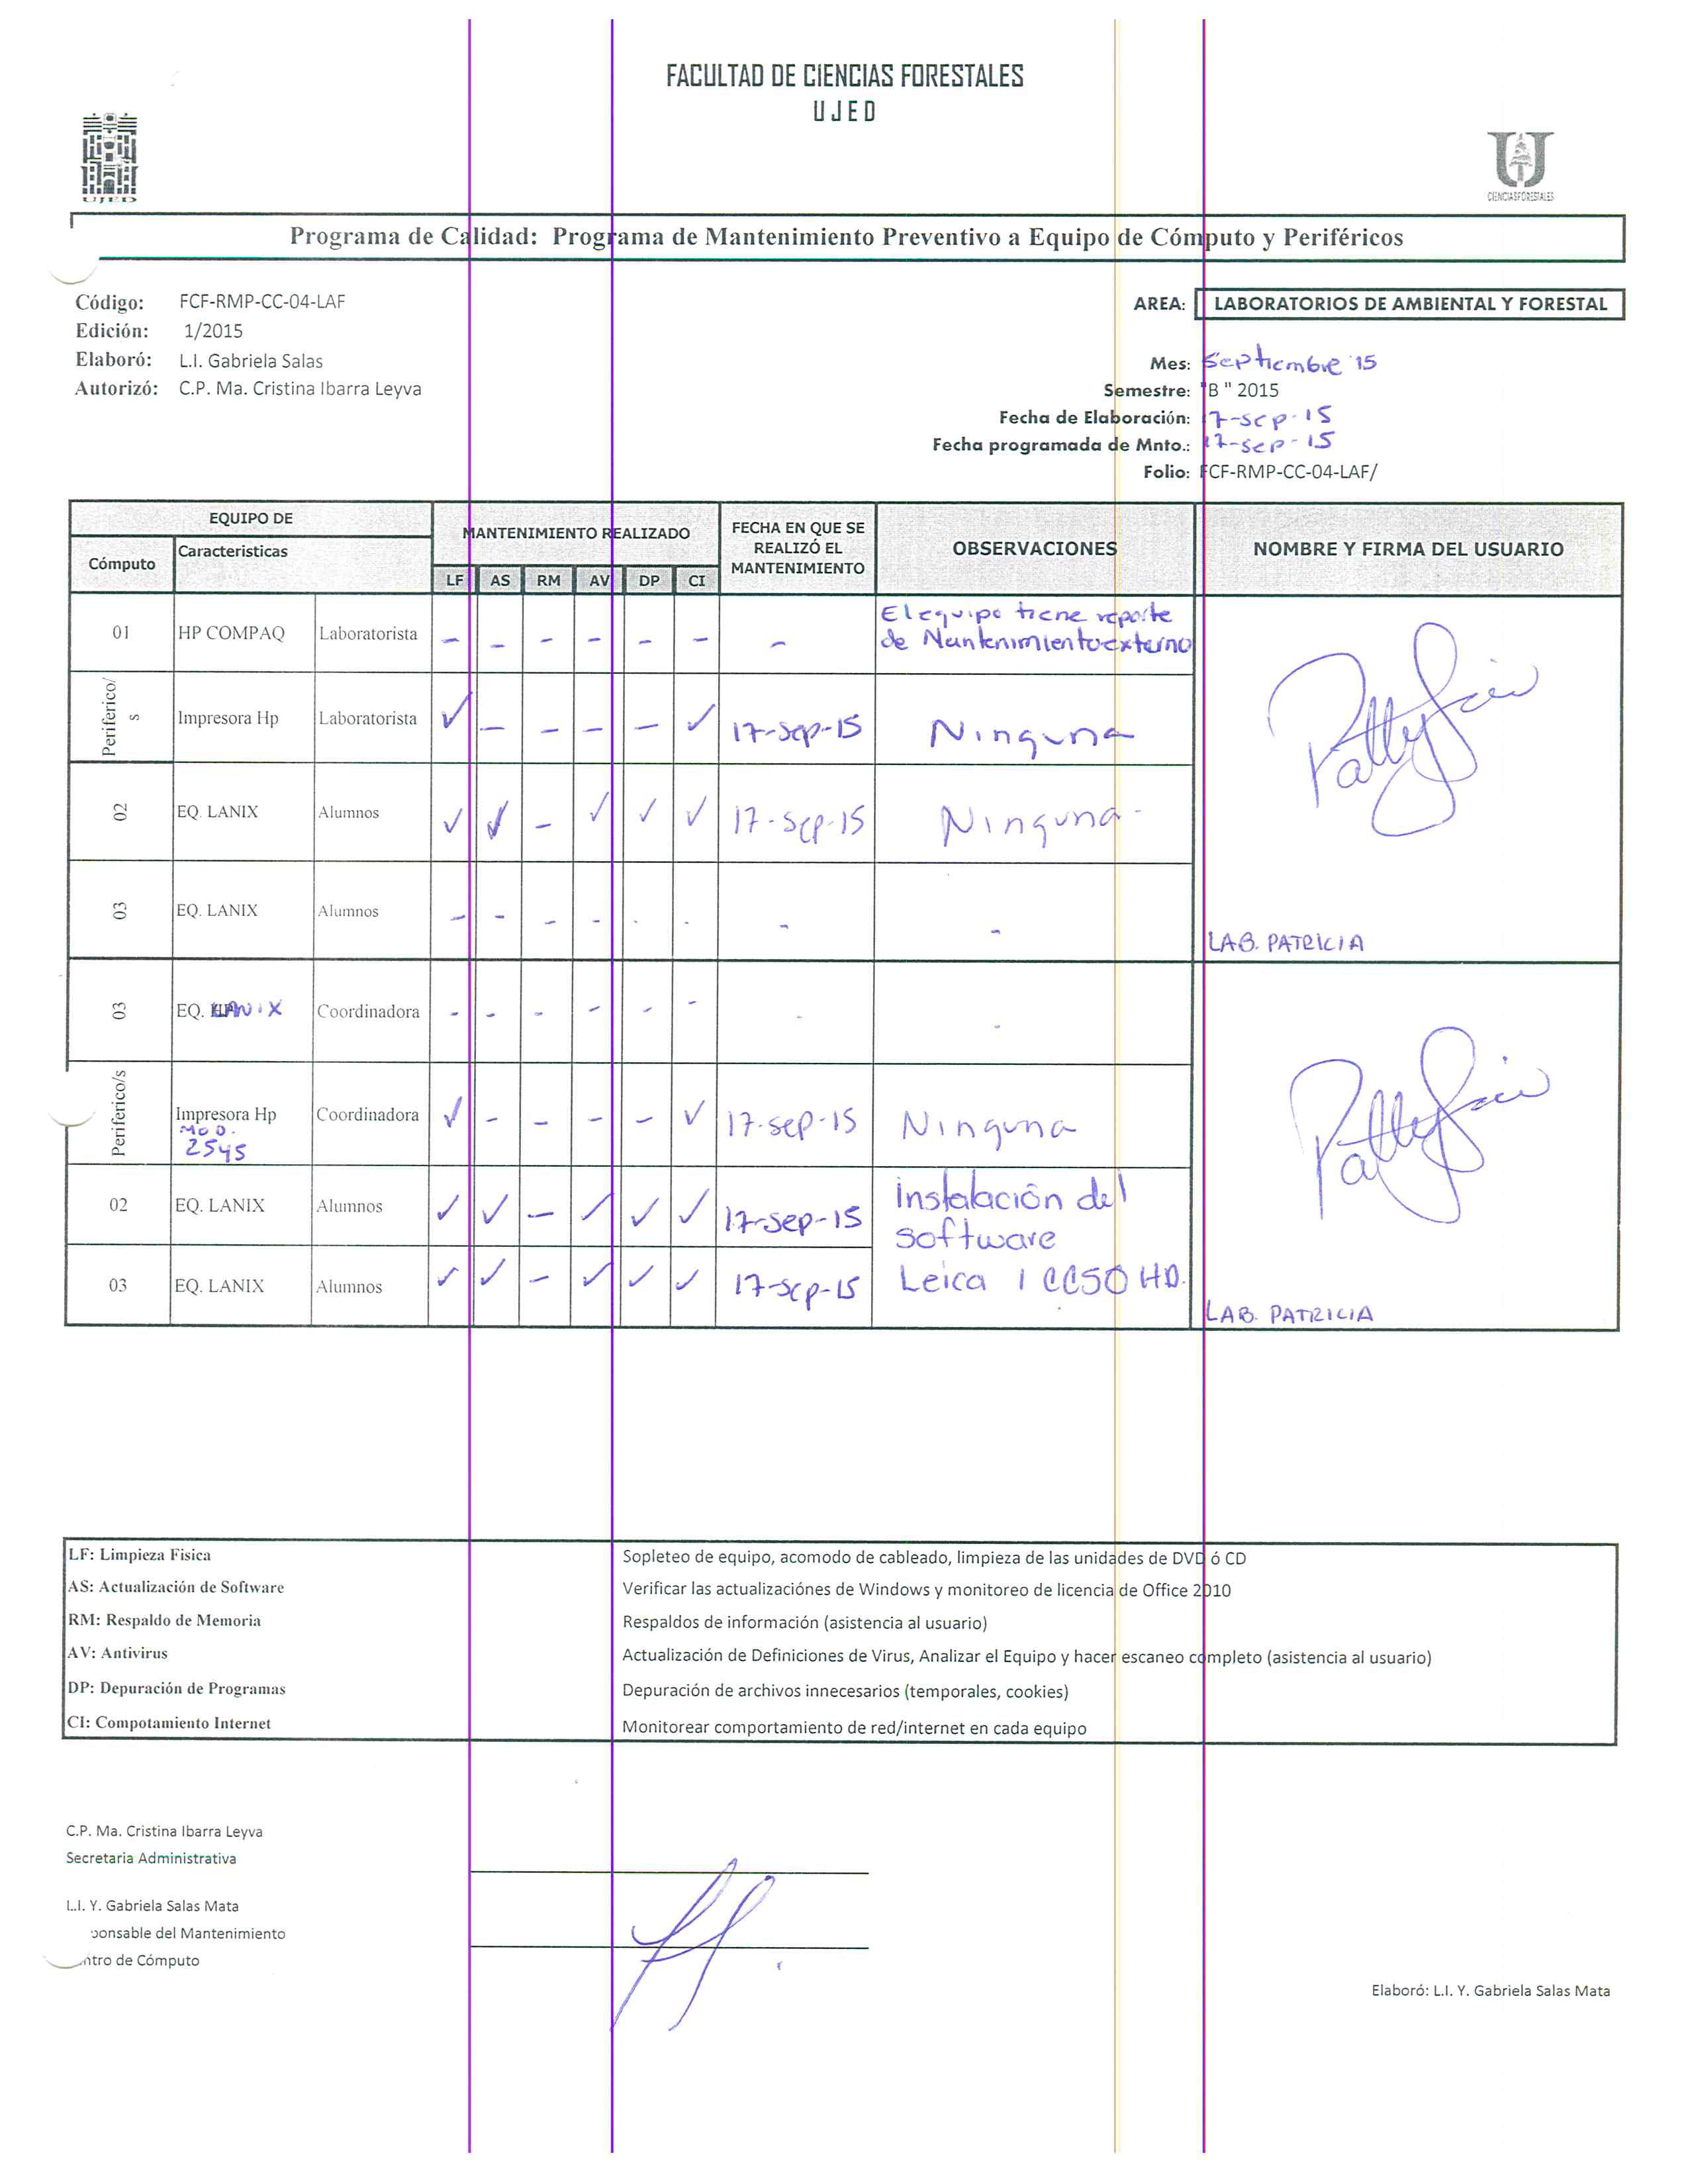 FACULTAD DE CIENCIAS FORESTALES
UJED
UJED
CIENCIAS FORESTALES
Programa de Calidad: Programa de Mantenimiento Preventivo a Equipo de Cómputo y Periféricos
Código: FCF-RMP-CC-04-LAF
Edición: 1/2015
Elaboró: L.I. Gabriela Salas
Autorizó: C.P. Ma. Cristina Ibarra Leyva
AREA: LABORATORIOS DE AMBIENTAL Y FORESTAL
Mes: Septiembre '15
Semestre: "B " 2015
Fecha de Elaboración: 17-sep-15
Fecha programada de Mnto.: 17-sep-15
Folio: FCF-RMP-CC-04-LAF/
EQUIPO DE
Cómputo
Caracteristicas
MANTENIMIENTO REALIZADO
LF AS RM AV DP CI
FECHA EN QUE SE
REALIZÓ EL
MANTENIMIENTO
OBSERVACIONES
NOMBRE Y FIRMA DEL USUARIO
01 HP COMPAQ Laboratorista - - - - - - - El equipo tiene reporte
de Mantenimiento externo
Periferico/
s Impresora Hp Laboratorista ✓ - - - - ✓ 17-sep-15 Ninguna
02 EQ. LANIX Alumnos ✓ ✓ - ✓ ✓ ✓ 17-sep-15 Ninguna-
03 EQ. LANIX Alumnos - - - - - - - -
LAB. PATRICIA
03 EQ. LANIX Coordinadora - - - - - - - -
Periferico/s Impresora Hp Coordinadora ✓ - - - - ✓ 17-sep-15 Ninguna
MOD.
2545
02 EQ. LANIX Alumnos ✓ ✓ - ✓ ✓ ✓ 17-sep-15 Instalación del
software
03 EQ. LANIX Alumnos ✓ ✓ - ✓ ✓ ✓ 17-sep-15 Leica ICC50 HD.
LAB. PATRICIA
LF: Limpieza Fisica Sopleteo de equipo, acomodo de cableado, limpieza de las unidades de DVD ó CD
AS: Actualización de Software Verificar las actualizaciónes de Windows y monitoreo de licencia de Office 2010
RM: Respaldo de Memoria Respaldos de información (asistencia al usuario)
AV: Antivirus Actualización de Definiciones de Virus, Analizar el Equipo y hacer escaneo completo (asistencia al usuario)
DP: Depuración de Programas Depuración de archivos innecesarios (temporales, cookies)
CI: Compotamiento Internet Monitorear comportamiento de red/internet en cada equipo
C.P. Ma. Cristina Ibarra Leyva
Secretaria Administrativa
L.I. Y. Gabriela Salas Mata
ponsable del Mantenimiento
ntro de Cómputo
Elaboró: L.I. Y. Gabriela Salas Mata